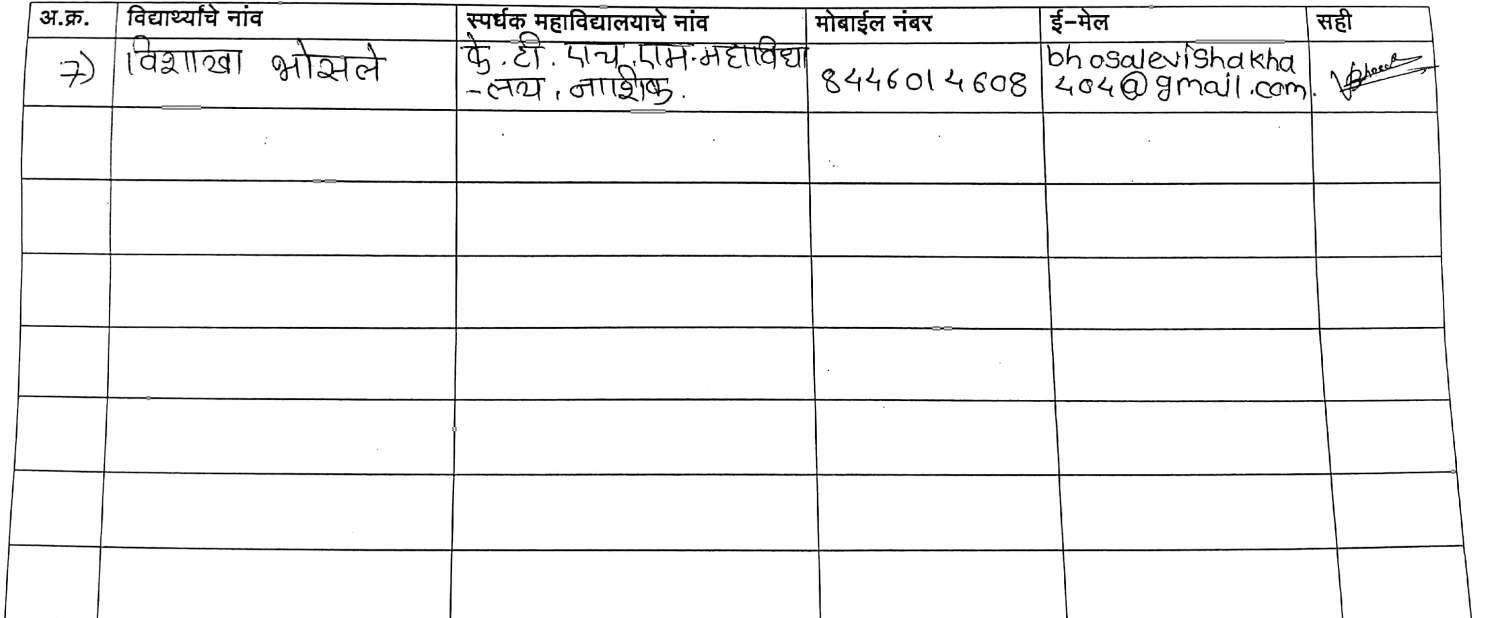 अ.क्र. विद्यार्थ्यांचे नांव स्पर्धक महाविद्यालयाचे नांव मोबाईल नंबर ई-मेल सही
7) विशाखा भोसले के. टी. एच. एम. महाविद्या 8446014608 bhosalevishakha
-लय, नाशिक. 404@gmail.com.